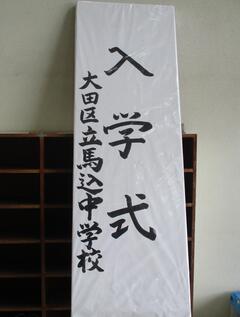 入学式
大田区立馬込中学校